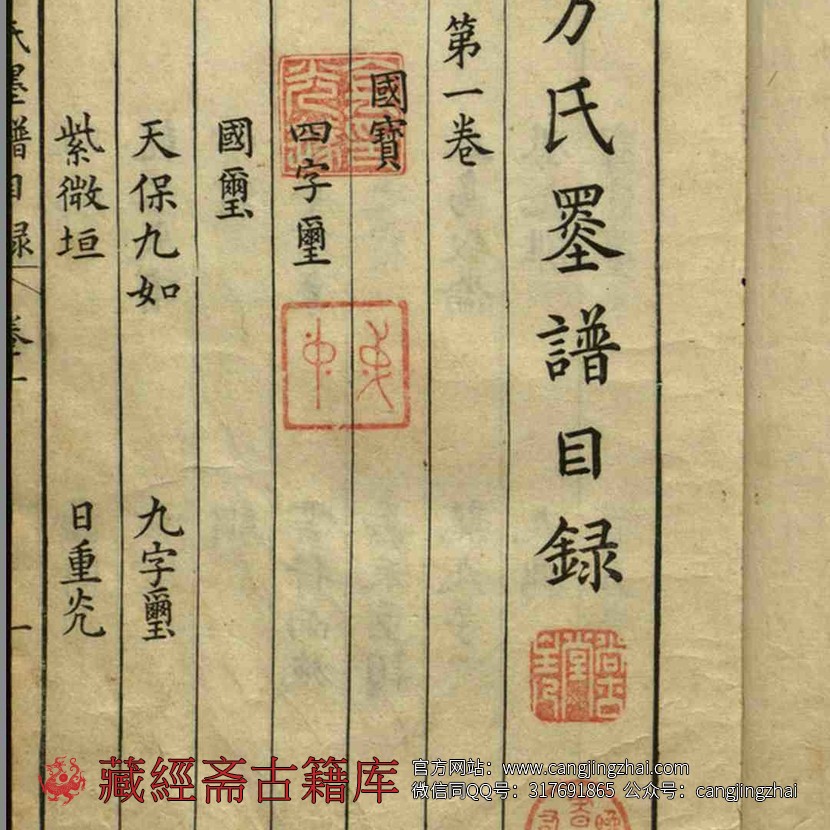 方氏墨譜目録
第一卷
國寶
四字璽
國璽
天保九如 九字璽
紫微垣 日重光
氏墨譜目録 卷一 一
藏經斋古籍库
官方网站：www.cangjingzhai.com
微信同QQ号：317691865 公众号：cangjingzhai